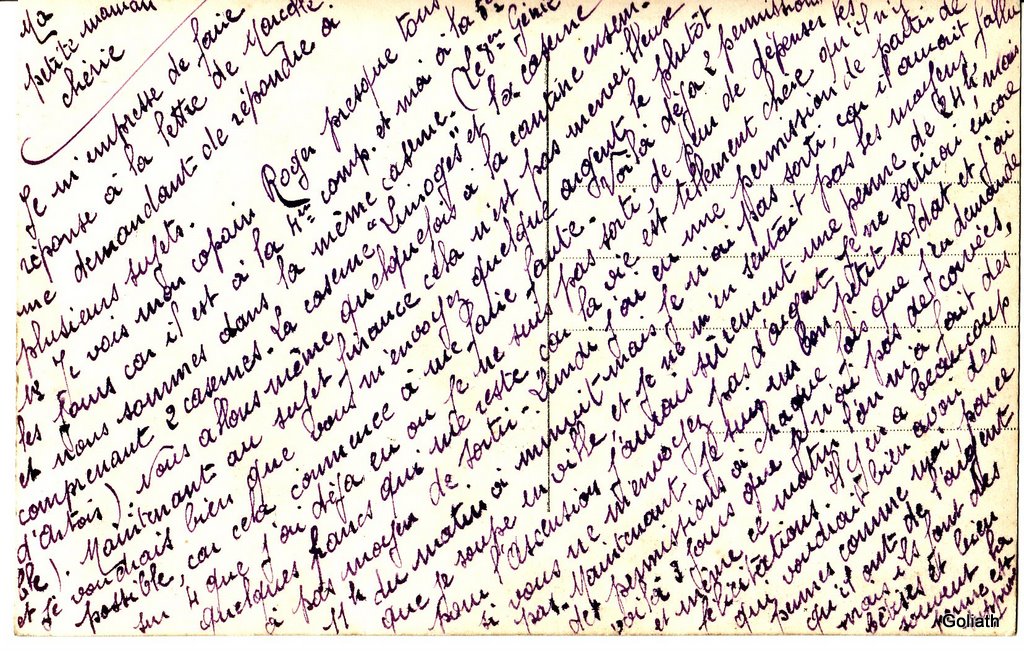 Ma
petite maman
chérie
Je m'empresse de faire
réponse à la lettre de Marcelle.
me demandant de répondre à
plusieurs sujets.
1° Je vois mon copain Roger presque tous
les jours car il est à la 4me comp. et moi à la
et nous sommes dans la même caserne. (Le Génie
comprenant 2 casernes - La caserne "Limoges" et la caserne
d'artois) nous allons même quelquefois à la cantine ensem-
ble). Maintenant au sujet finance cela n'est pas merveilleux
et je voudrais bien que vous m'envoyez quelque argent, le plutôt
possible, car cela commence à me faire faute - Voilà déjà 2 permissions
sur 4 que j'ai déja eu ou je ne suis pas sorti, de peur de dépenser les
quelques francs qui me reste car la vie est tellement chère qu'il n'y
à pas moyen de sortir - Lundi j'ai eu une permission de partir de
11h du matin à minuit mais je n'ai pas sorti, car il aurait fallu
que je soupe en ville et je ne m'en sentait pas les moyens
pour l'Ascension j'aurais sûrement une perme de 24h, mais
si vous ne m'envoyez pas d'argent je ne sortirai encore
pas. Maintenant je suis un bon petit soldat et j'ai
des permissions à chaque fois que j'en demande
voilà 3 jours que je n'ai pas de corvées,
et même ce matin l'on m'a fait des
félicitations. Il y en a beaucoup
qui voudrait bien avoir des
permes comme moi parce
qu'il ont de l'argent
mais ils font des
bêtises et bien
souvent la
perme est
Goliath